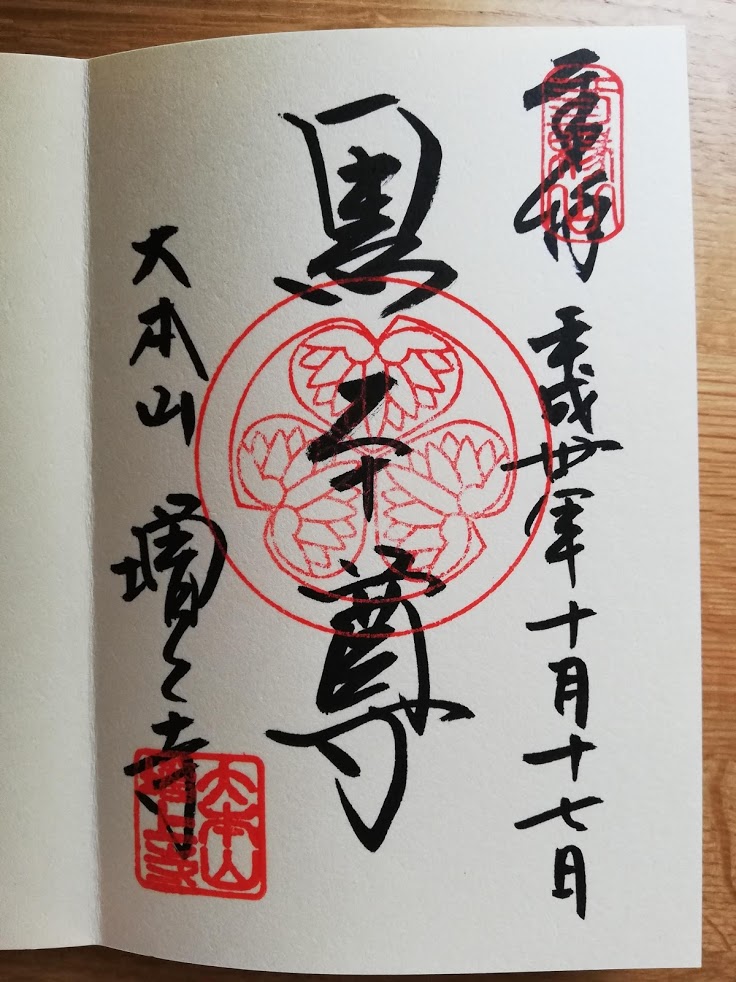 奉拝 平成卅年十月十七日
黒本尊
大本山 増上寺
大本山
増上寺